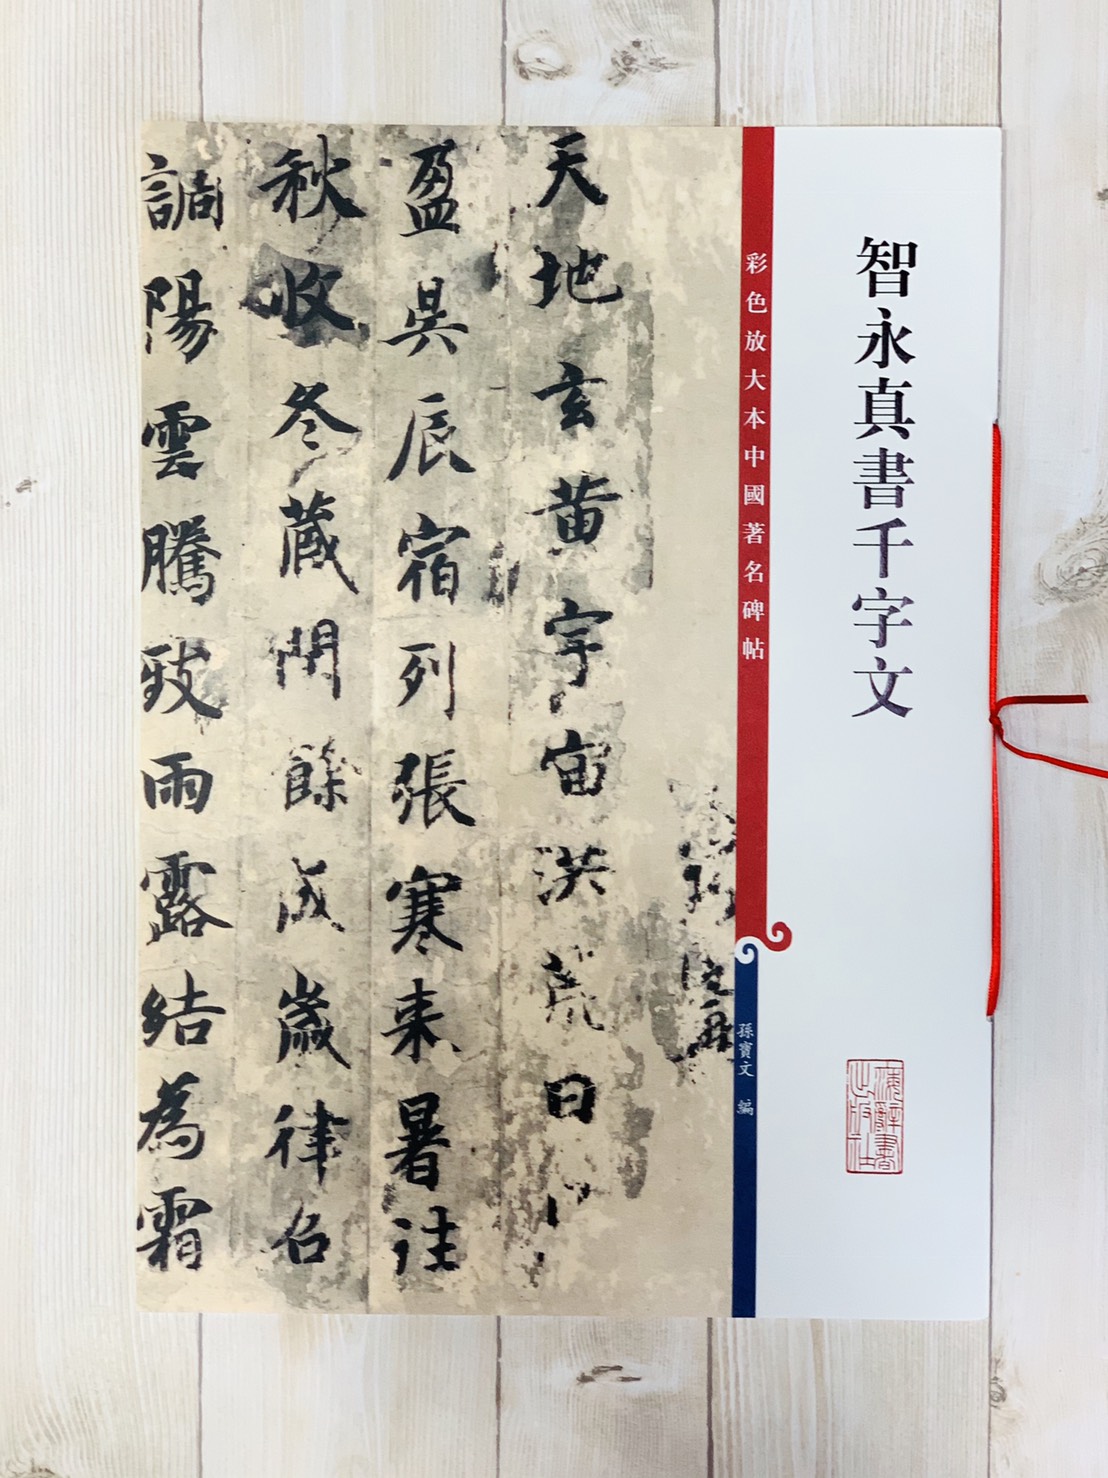 智永真書千字文
彩色放大本中國著名碑帖
孫寶文 編
天地玄黄宇宙洪荒日
盈昃辰宿列張寒来暑往
秋收冬蔵閏餘成歲律召
調陽雲騰致雨露結為霜